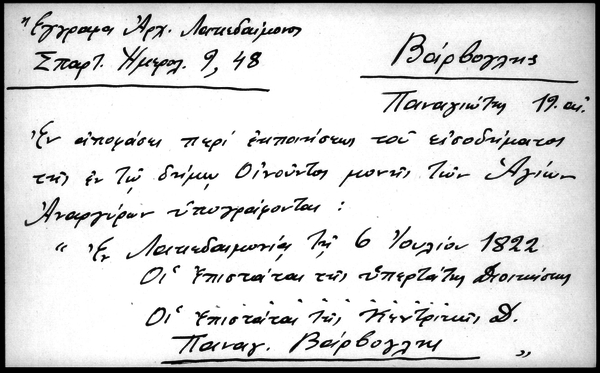 "Ἔγγραφα Ἀρχ. Λακεδαίμονος
Σπαρτ. Ἡμερολ. 9, 48
Βάρβογλης
Παναγιώτης 19. αἰ.
Ἐν ἀποφάσει περί ἐκποιήσεως τοῦ εἰσοδήματος
τῆς ἐν τῷ δήμῳ Οἰνοῦντος μονῆς τῶν Ἁγίων
Ἀναργύρων ὑπογράφονται :
" Ἐν Λακεδαιμονίᾳ τῇ 6 Ἰουλίου 1822
Οἱ Ἐπιστάται τῆς ὑπερτάτης Διοικήσεως
Οἱ Ἐπιστάται τῆς Κεντρικῆς Δ.
Παναγ. Βάρβογλης "